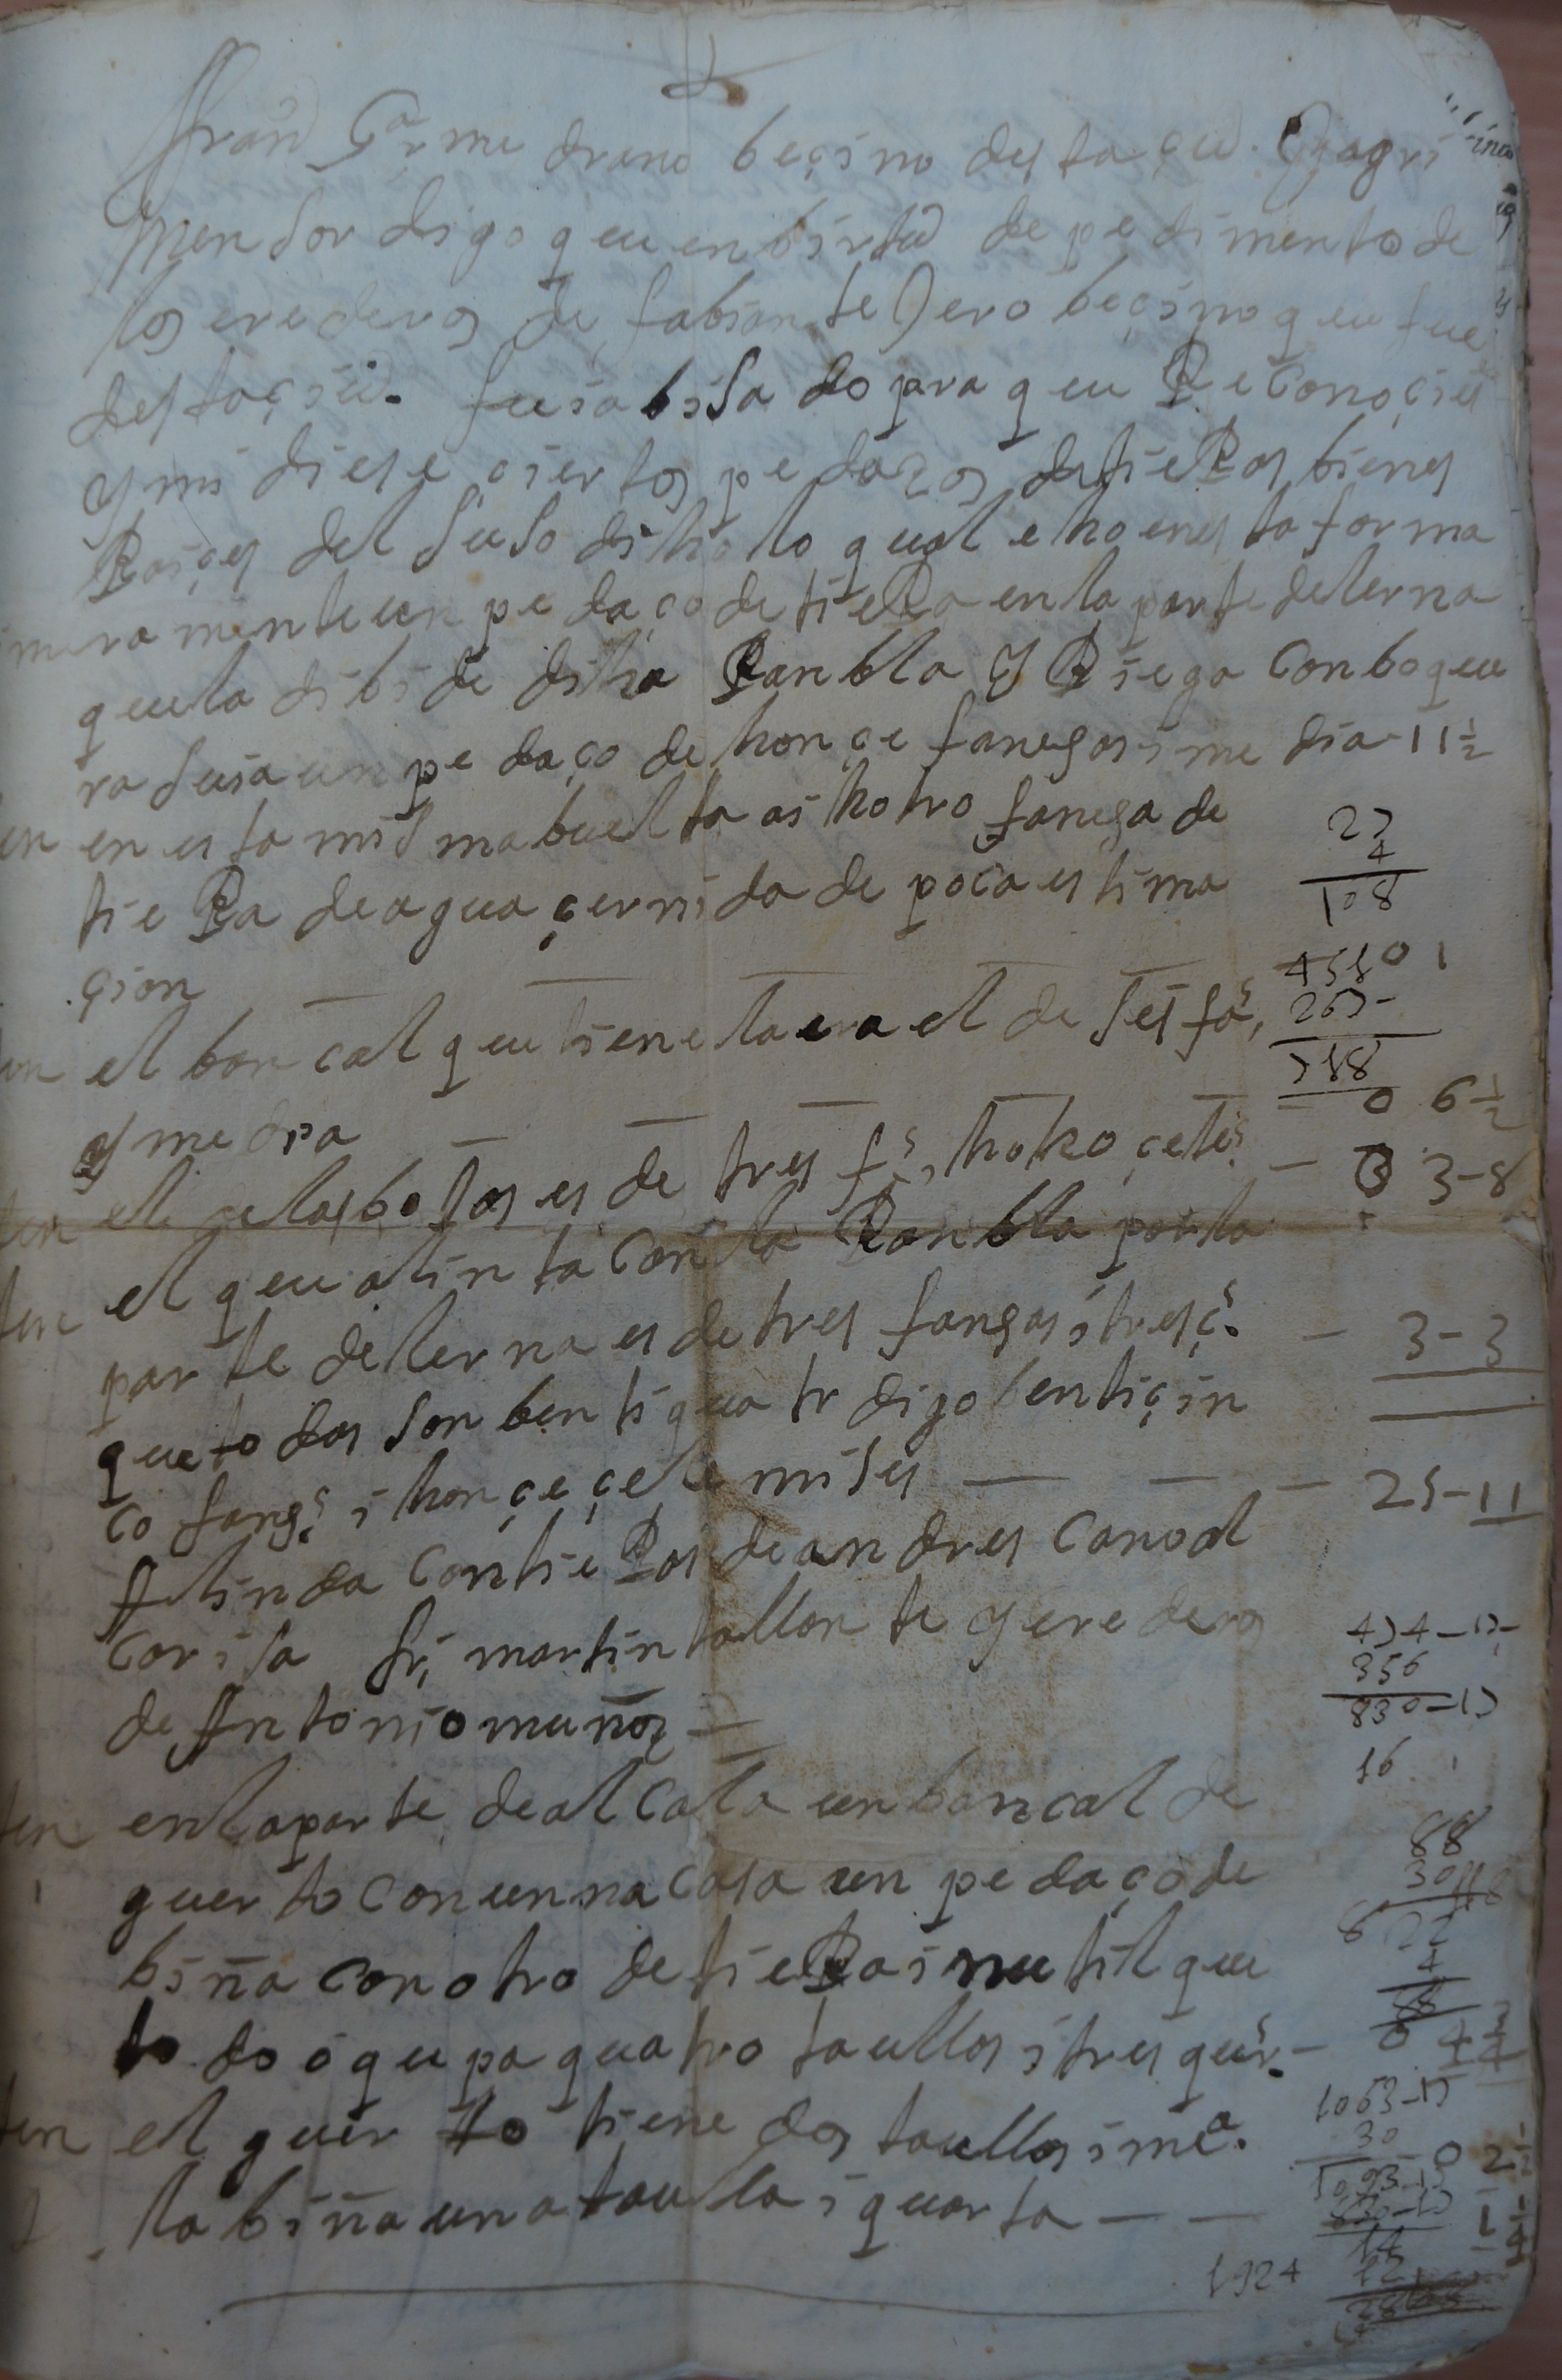 Franco Gar me drano beçino desta çiud. y agri
mensor digo queu en birtud de pedimento de
los erederos de fabian tejero beçino queu fue
desta çiud. fui abisado para queu Reconoçies
y mi diese çiertos pedaços de tieRas bienes
Raiçes del suso diho lo qual e ho en esta forma
mera mente un pedaço de tieRa en la parte de lerna
queu la dibide diha Ranbla y Riego con boqueu
ra suia un pedaço de honçe fanegas i me dia - 11 1/2
en en esta misma buelta ai hotro fanega de
tieRa de agua çernida de poca estima
çion 0 1
el bancal queu tiene la era el de seis fas,
y media 0 6 1/2
ten el de las balsas es de tres fs, hoho çeles - 0 3-8
ten el queu alinta con la Ranbla por la
parte de lerna es de tres fangas i tres çs. - 3-3
que todas son benti quatr digo benti çin
co fangs. i honçe çelemises - 25-11
alinda con tieRas de andres cano al
corisa fr, martin tallon te y erederos
de Antonio muñoz
ten en la parte de alcala un bancal de
guerto con unna casa un pedaço de
biña con otro de tieRa inutil queu
todo oqueupa quatro taullas i tres qurs. - 0 4 3/4
ten el guerto tiene dos taullas i mea. - 0 2 1/2
la biña una taulla i quarta - - 1 1/4
27
4
108
474-17-
356
830-17
16
88
22
4
88
1063-17
30
1093-17
830-17
14
12
1924